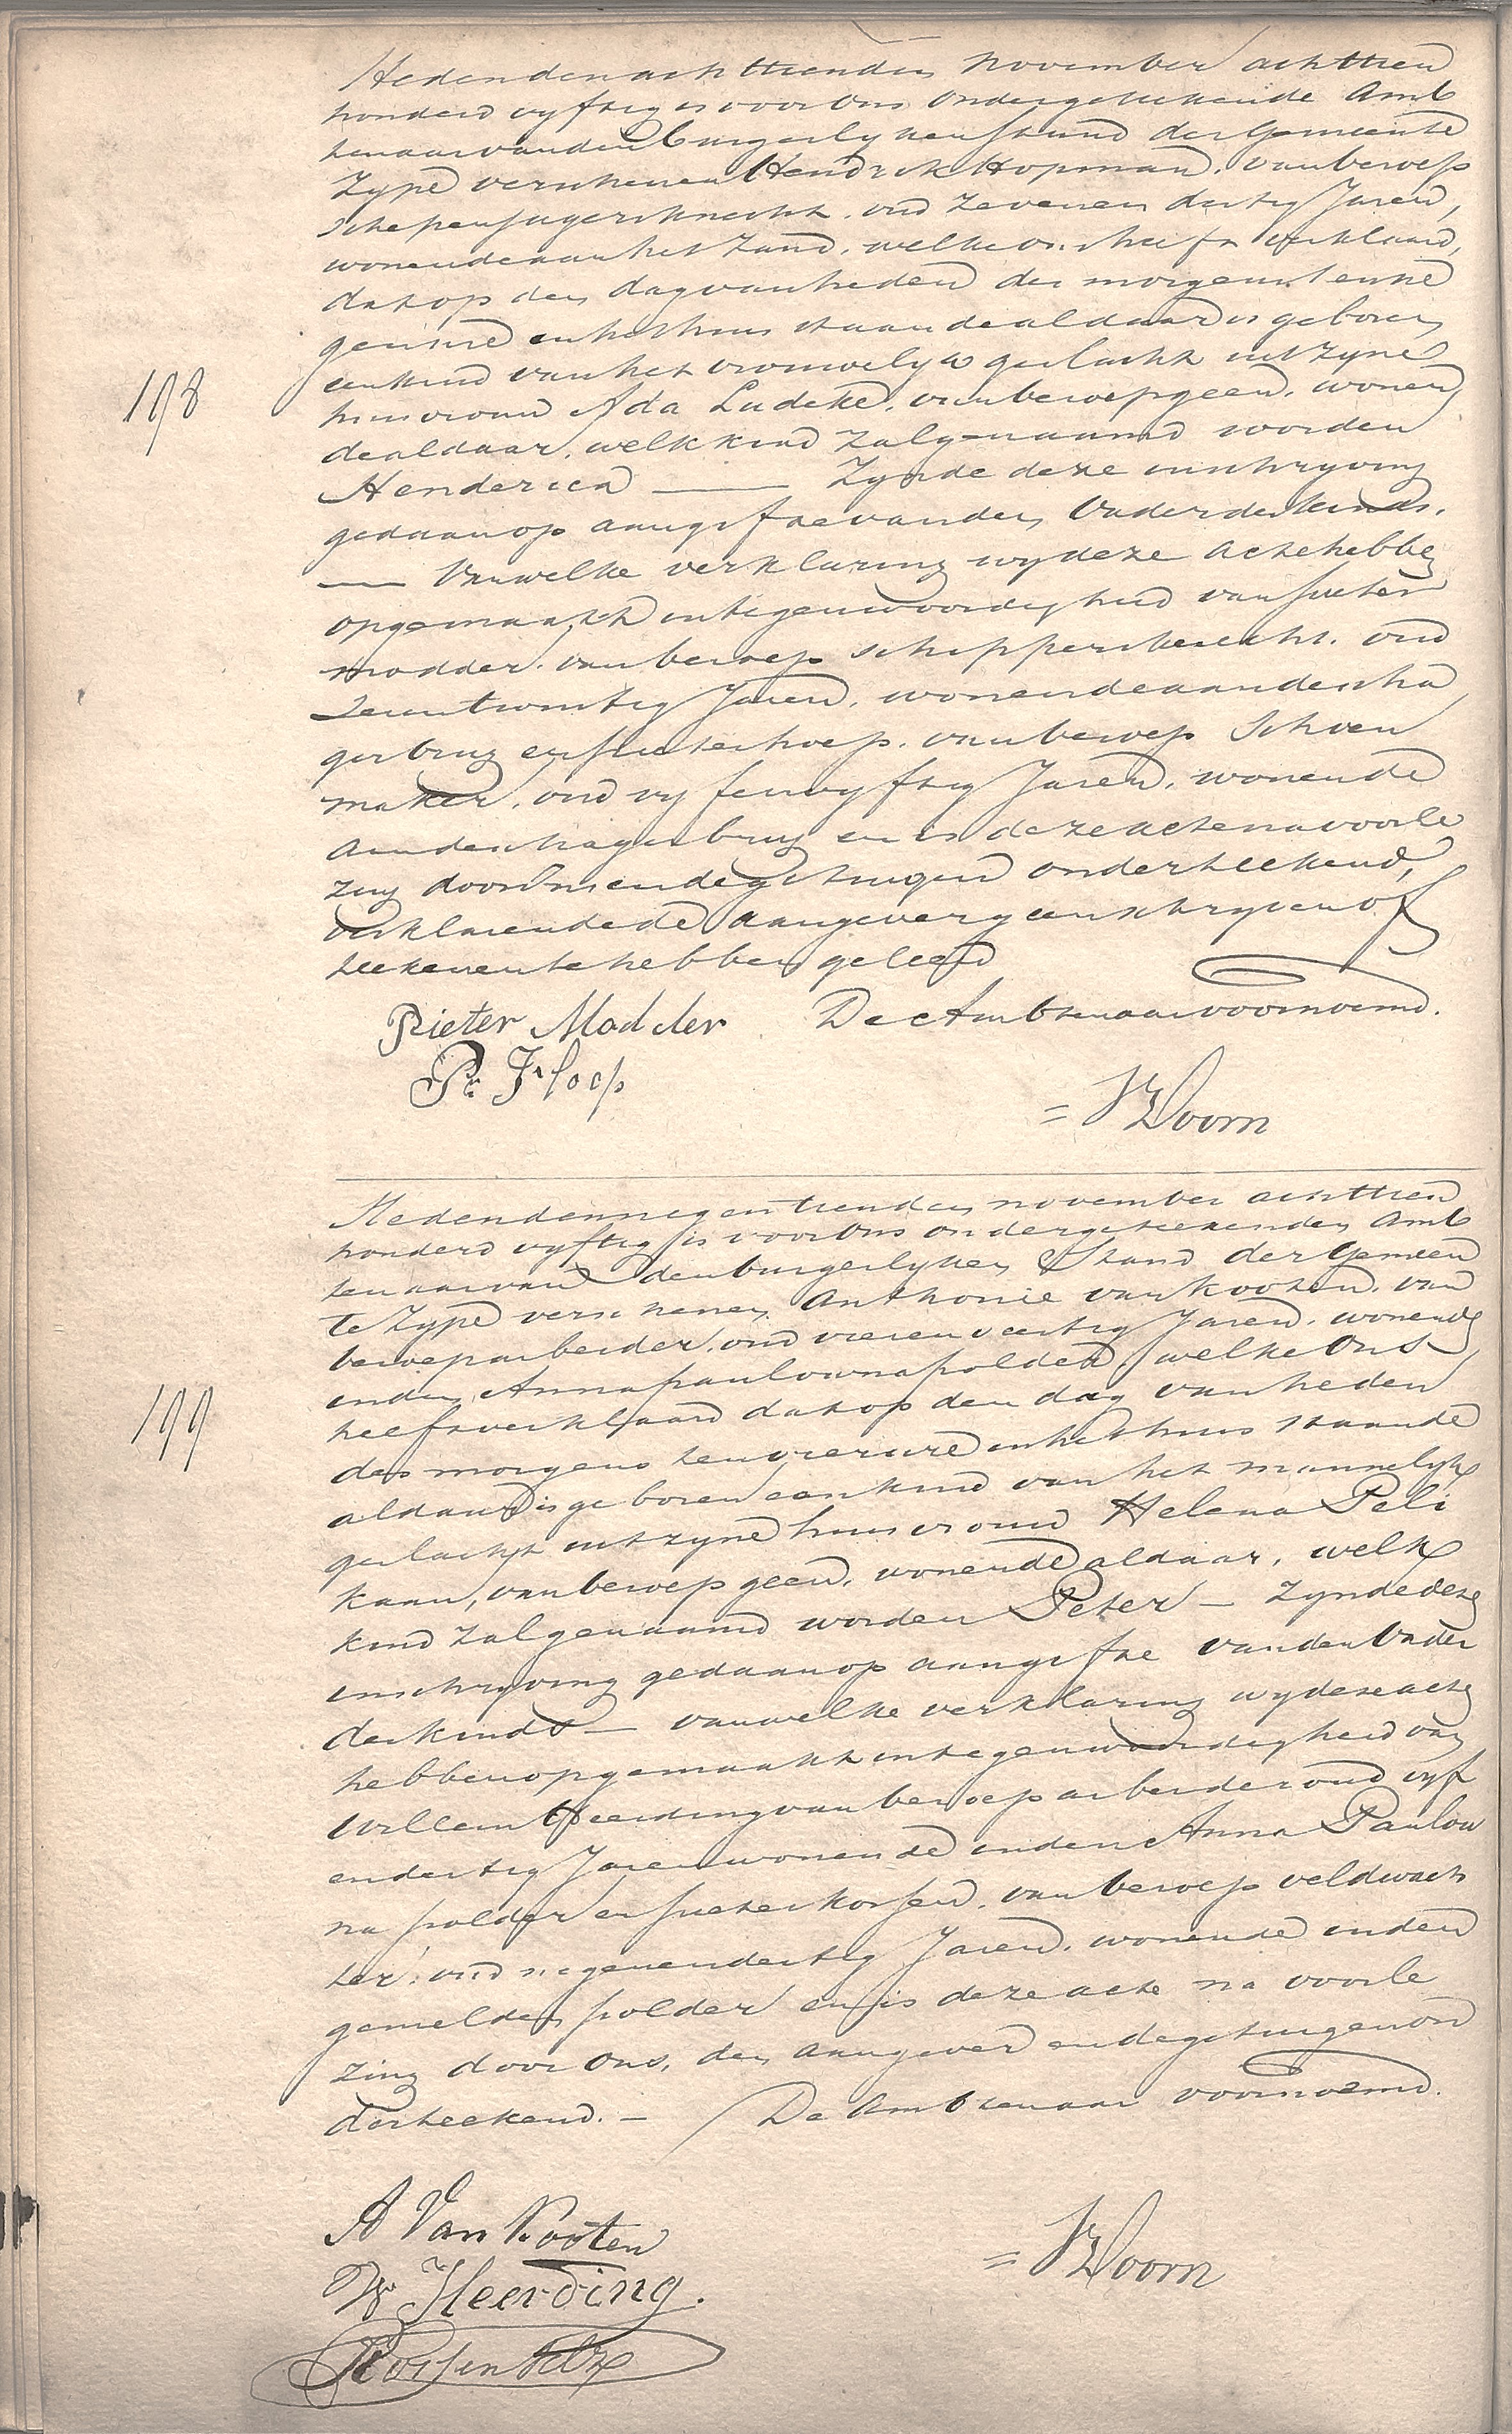 Heden den achttienden November achttien
honderd vyftig is voor Ons Ondergeteekende Amb
tenaar van den Burgerlyken Stand der Gemeente
Zype verschenen Hendrik Hopman, van beroep
schepenjagersknecht, oud zeven en dertig Jaren,
wonende aan het Zand, welke ons heeft verklaard,
dat op den dag van heden des morgens ten ne
gen ure in het huis staande aldaar is geboren
een kind van het vrouwelyk geslacht uit zyne
huisvrouw Ida Ludeke, van beroep geen, wonen
198
de aldaar, welk kind zal genaamd worden
Henderica — Zynde deze inschryving
gedaan op aangifte van den Vader des kinds.
— Van welke verklaring wy deze Acte hebben
opgemaakt in tegenwoordigheid van Pieter
Modder, van beroep schippersknecht, oud
twintig Jaren, wonende aan de Scha
gerbrug en Pieter Floep, van beroep Schoen
maker, oud vyf en vyftig Jaren, wonende
aan de Schagerbrug en is deze acte na voorle
zing door Ons en de getuigen onderteekend,
verklarende de aangever geen schryven of
teekenen te hebben geleerd
Pieter Modder De Ambtenaar voornoemd.
Pr. Floep
= Doorn
Heden den negentienden november achttien
honderd vyftig is voor Ons ondergeteekenden Amb
tenaar van den burgerlyken Stand der Gemeen
te Zype verschenen Anthonie van Kooten, van
beroep arbeider, oud vier en veertig Jaren, wonende
in den Anna paulowna polder, welke Ons
heeft verklaard dat op den dag van heden
199
des morgens ten vier ure in het huis staande
aldaar is geboren een kind van het mannelyk
geslacht uit zyne huisvrouw Helena Peli
kaan, van beroep geen, wonende aldaar, welk
kind zal genaamd worden Peter — Zynde deze
inschryving gedaan op aangifte van den Vader
des kinds — van welke verklaring wy deze acte
hebben opgemaakt in tegenwoordigheid van
Willem Heerding van beroep arbeider oud vyf
en dertig Jaren wonende in den Anna Paulow
na polder en Pieter Korsen, van beroep veldwach
ter, oud negen en dertig Jaren, wonende in den
gemelden polder en is deze acte na voorle
zing door Ons, den Aangever en de getuigen on
derteekend. — De Ambtenaar voornoemd.
A Van Kooten
= Doorn
W Heerding.